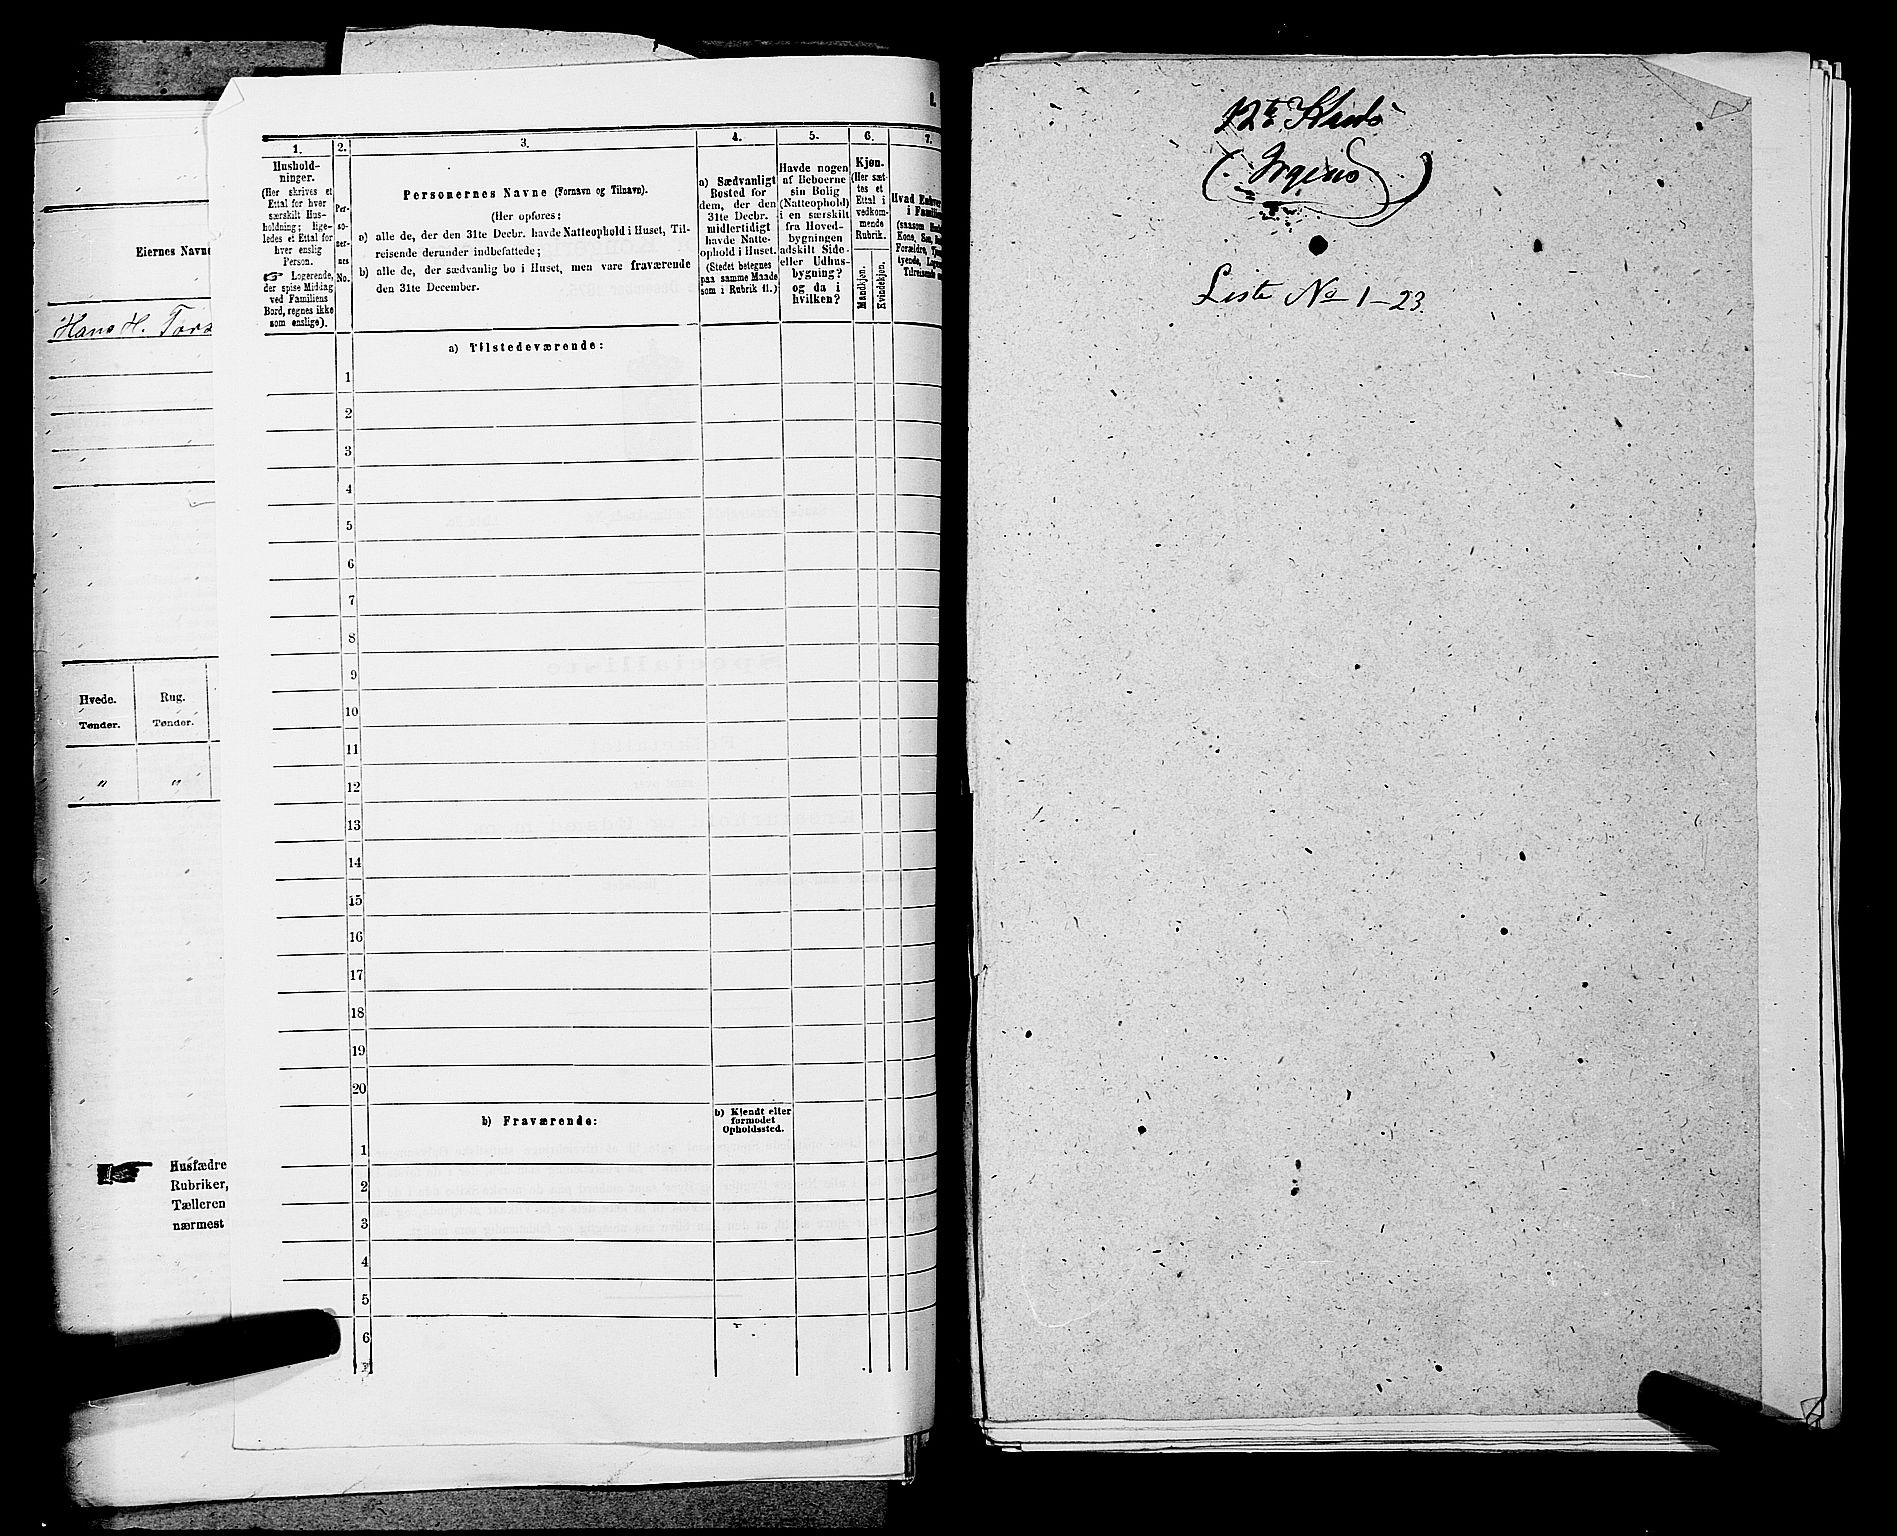 Eiernes Navne
Hans H. Tors
Hvede.
Tønder.
Rug.
Tønder.
"
"
Husfædre
Rubriker,
Tælleren
nærmest
1.
Hushold-
ninger.
(Her skrives et
Ettal for hver
særskilt Hus-
holdning; lige-
ledes et Ettal for
hver enslig
Person.
☞ Logerende,
der spise Middag
ved Familiens
Bord, regnes ikke
som enslige).
2.
Per-
so-
ner-
nes
No.
3.
Personernes Navne (Fornavn og Tilnavn).
(Her opføres:
a) alle de, der den 31te Decbr. havde Natteophold i Huset, Til-
reisende derunder indbefattede;
b) alle de, der sædvanlig bo i Huset, men vare fraværende
den 31te December.
4.
a) Sædvanligt
Bosted for
dem, der den
31te Decbr.
midlertidigt
havde Natte-
ophold i Huset.
(Stedet betegnes
paa samme Maade
som i Rubrik 11.)
5.
Havde nogen
af Beboerne
sin Bolig
(Natteophold)
i en særskilt
fra Hoved-
bygningen
adskilt Side-
eller Udhus-
bygning?
og da i
hvilken?
6.
Kjøn.
(Her sæt-
tes et
Ettal i
vedkom-
mende
Rubrik.
Mandkjøn.
Kvindekjøn.
7.
Hvad Enhver
i Familie
(saasom
Kone, Søn,
Forældre,
tyende,
Tilreisende
a) Tilstedeværende:
1
2
3
4
5
6
7
8
9
10
11
12
13
14
15
16
17
18
19
20
b) Fraværende:
b) Kjendt eller
formodet
Opholdssted.
1
2
3
4
5
6
7
Liste No 1-23.